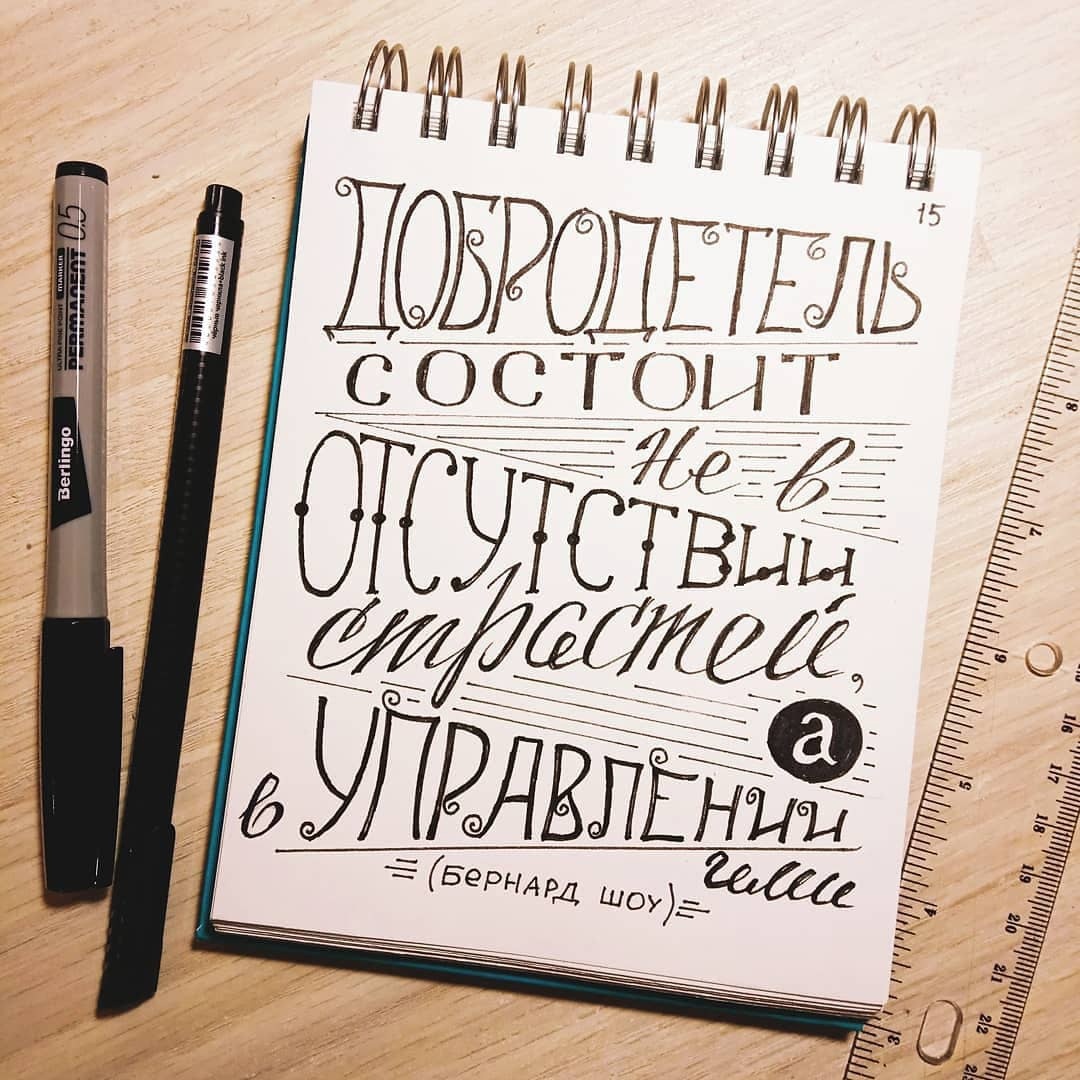 15
ДОБРОДЕТЕЛЬ
СОСТОИТ
не в
ОТСУТСТВИИ
страстей,
а
в УПРАВЛЕНИИ
ими
(БЕРНАРД ШОУ)
Berlingo
ULTRA FINE POINT MARKER
PERMANENT 0.5
8
7
6
5
4
3
16
17
18
19
20
21
22